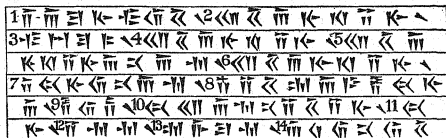 1 𐎭𐎠𐎼𐎹𐎺𐎢𐏁 2 𐎧𐏁𐎠𐎹𐎰𐎡𐎹 𐏐
3 𐎺𐏀𐎼𐎣 𐏐 4 𐎧𐏁𐎠𐎹𐎰𐎡𐎹 𐏐 5 𐎧𐏁𐎠
𐎹𐎰𐎡𐎹𐎠𐎴𐎠𐎶 6 𐎧𐏁𐎠𐎹𐎰𐎡𐎹 𐏐
7 𐎭𐏃𐎹𐎢𐎴𐎠𐎶 𐏐 8 𐎻𐎡𐏁𐎫𐎠𐎿𐎱𐏃𐎹
𐎠 9 𐎱𐎢𐏂 𐏐 10 𐏃𐎧𐎠𐎶𐎴𐎡𐏁𐎡𐎹 𐏐 11 𐏃
𐎹 12 𐎡𐎶𐎶 13 𐎫𐎨𐎼𐎶 14 𐎠𐎤𐎢𐎴𐎢𐏁